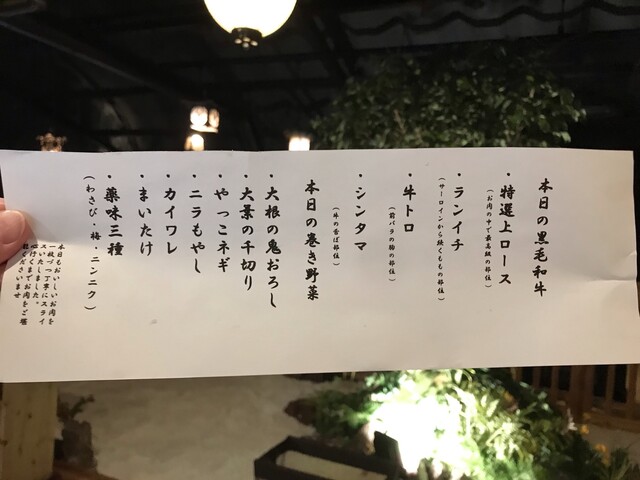 本日の黒毛和牛
・特選上ロース
(お肉の中で最高級の部位)
・ランイチ
(サーロインから続くももの部位)
・牛トロ
(前バラの脂の部位)
・シンタマ
本日の巻き野菜
・大根の鬼おろし
・大葉の千切り
・やっこネギ
・ニラもやし
・カイワレ
・まいたけ
・薬味三種
(わさび・梅・ニンニク)
本日もおいしいお肉を
一枚づつ丁寧にスライ
スいたしました。
心行くまでお肉をご堪
能くださいませ